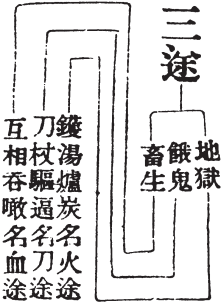 三途
地獄
餓鬼
畜生
鑊湯爐炭名火途
刀杖驅逼名刀途
互相吞噉名血途